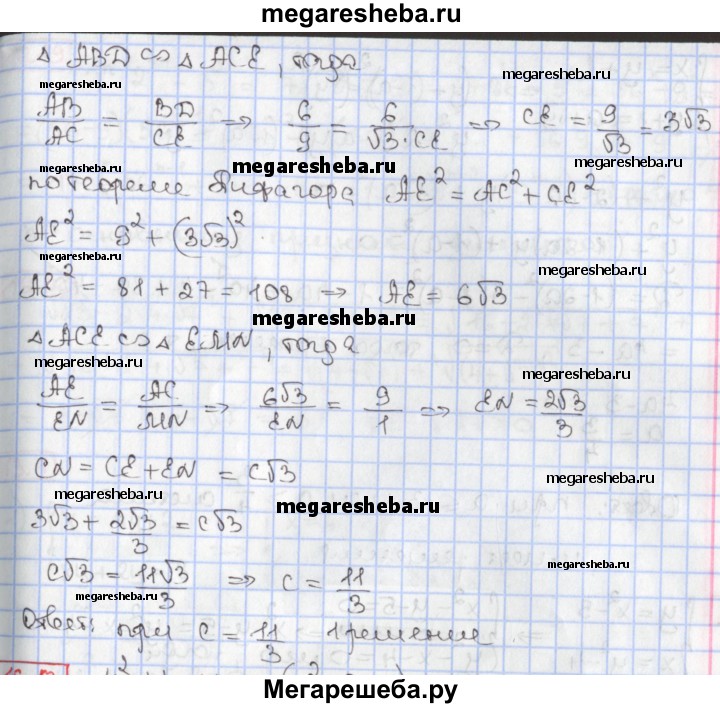 megaresheba.ru
△ ABD ∽ △ ACE, тогда
megaresheba.ru
megaresheba.ru
AB/AC = BD/CE ⇒ 6/9 = 6/(√3·CE) ⇒ CE = 9/√3 = 3√3
megaresheba.ru
megaresheba.ru
megaresheba.ru
по теореме Пифагора AE² = AC² + CE²
megaresheba.ru
AE² = 9² + (3√3)²
megaresheba.ru
AE² = 81 + 27 = 108 ⇒ AE = 6√3
megaresheba.ru
△ ACE ∽ △ EMN, тогда
megaresheba.ru
megaresheba.ru
AE/EN = AC/MN ⇒ 6√3/EN = 9/1 ⇒ EN = 2√3/3
megaresheba.ru
CN = CE + EN = c√3
megaresheba.ru
megaresheba.ru
megaresheba.ru
3√3 + 2√3/3 = c√3
megaresheba.ru
c√3 = 11√3/3 ⇒ c = 11/3
megaresheba.ru
megaresheba.ru
Ответ: при c = 11/3 1 решение
megaresheba.ru
Мегарешеба.ру